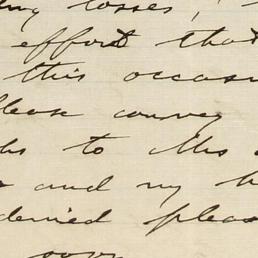 losses,
effort that
this occasi
please convey
to Mrs
and my h
denied pleas